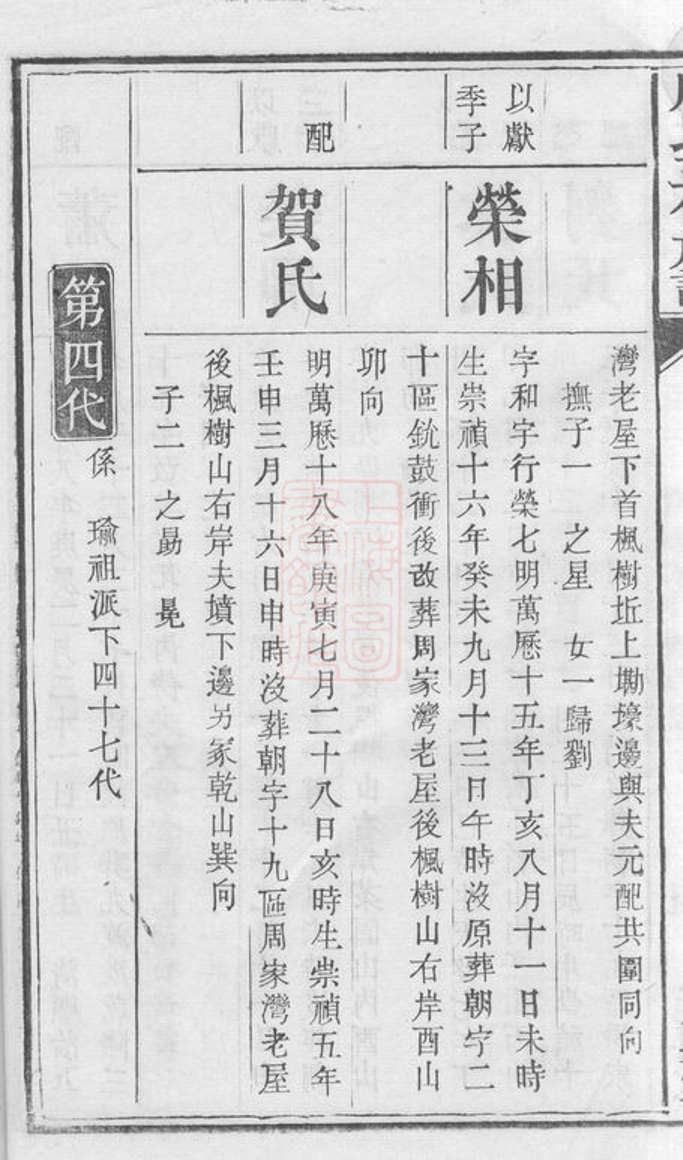 灣老屋下首楓樹坵上墈壕邊與夫元配共圍同向
撫子一 之星 女一歸劉
以獻
季子
榮相
字和宇行榮七明萬厯十五年丁亥八月十一日未時
生崇禎十六年癸未九月十三日午時沒原葬朝字二
十區銃鼓衝後改葬周家灣老屋後楓樹山右岸酉山
卯向
配
賀氏
明萬厯十八年庚寅七月二十八日亥時生崇禎五年
壬申三月十六日申時沒葬朝字十九區周家灣老屋
後楓樹山右岸夫墳下邊另冢乾山巽向
子二 之勗 晃
第四代
係 瑜祖派下四十七代